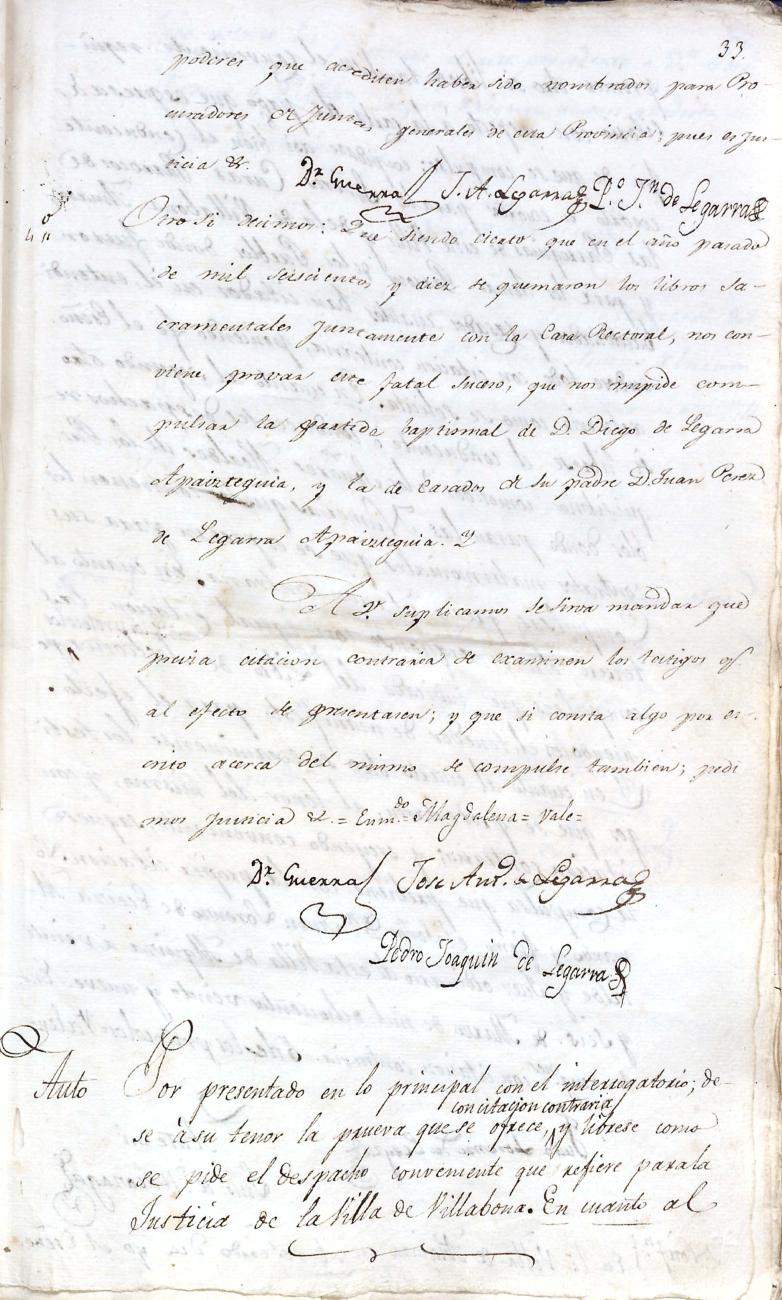 33.
poderes que acrediten haber sido nombrados para Pro-
curadores de Juntas generales de esta Provincia: pues es Jus-
ticia &.
Dr. Guerra J. A. Legarra P.º J.n de Legarra
4º Otro si decimos: Que siendo cierto que en el año pasado
de mil seiscientos y diez se quemaron los libros sa-
cramentales juntamente con la Casa Rectoral, nos con-
viene provar este fatal suceso, que nos impide com-
pulsar la partida baptismal de D. Diego de Legarra
Apaizteguia, y la de casados de su padre D. Juan Perez
de Legarra Apaizteguia. Y
A V. suplicamos se sirva mandar que
previa citacion contraria se examinen los testigos q.e
al efecto se presentaren; y que si consta algo por es-
crito acerca del mismo se compulse tambien; pedi
mos Justicia &. = Enm.do = Magdalena = Vale =
Dr. Guerra Jose Ant. de Legarra
Pedro Joaquin de Legarra
Auto Por presentado en lo principal con el interrogatorio; de-
con citacion contraria
se à su tenor la prueva que se ofrece, y librese como
se pide el despacho conveniente que refiere para la
Justicia de la Villa de Villabona. En cuanto al